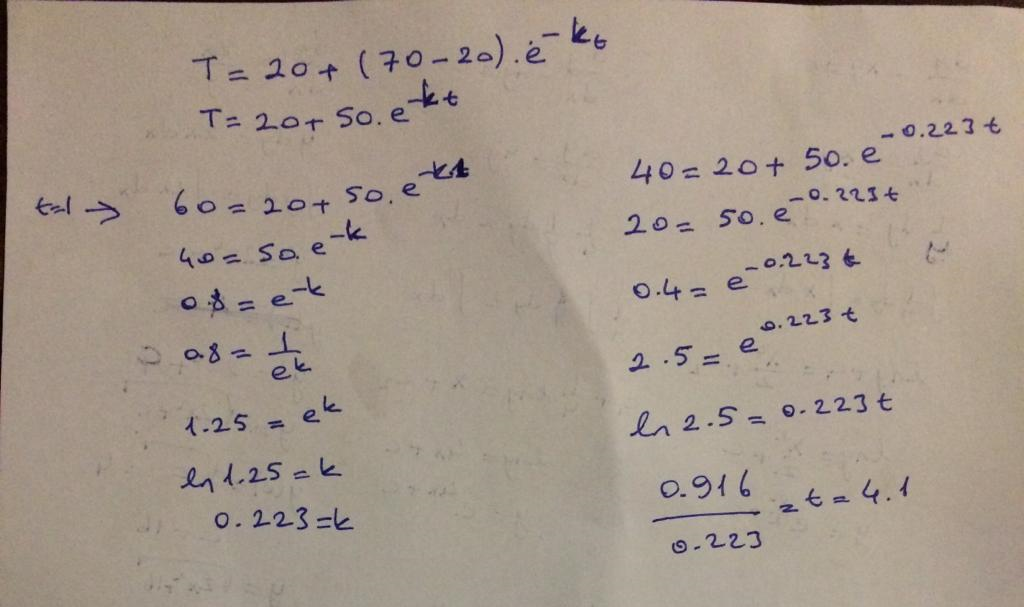 T = 20 + (70 - 20) . e^-kt
T = 20 + 50. e^-kt
t=1 → 60 = 20 + 50. e^-k1
40 = 50. e^-k
0.8 = e^-k
0.8 = 1/e^k
1.25 = e^k
ln 1.25 = k
0.223 = k
40 = 20 + 50. e^-0.223t
20 = 50. e^-0.223t
0.4 = e^-0.223t
2.5 = e^0.223t
ln 2.5 = 0.223t
0.916/0.223 = t = 4.1